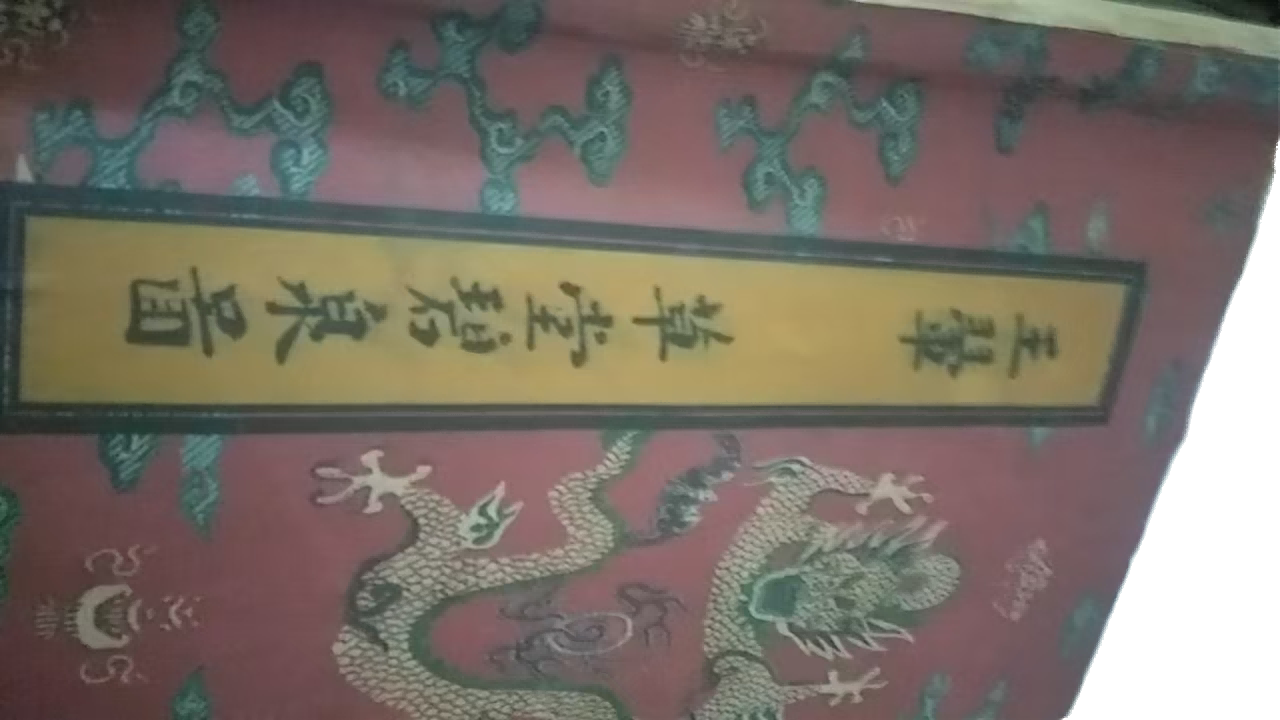 王翬 草堂碧泉圖